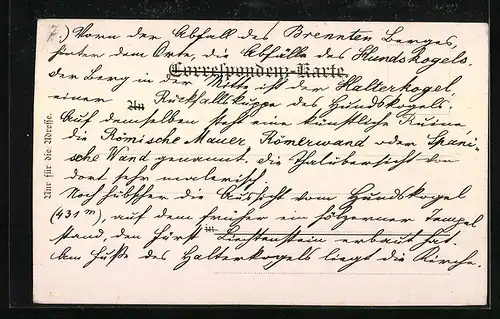 7.) Vorn der Abfall des Brennten Berges,
hinter dem Orte, die Abfälle des Hundskogels.
Correspondenz-Karte.
der Berg in der Mitte ist der Halterkogel,
An
einer Rückfallkuppe des Hundskogels.
Auf demselben steht eine künstliche Ruine,
die Römische Mauer, Römerwand oder Spani-
sche Wand genannt. die Thalübersicht von
dort sehr malerisch.
Noch hübscher die Aussicht vom Hundskogel
(431 m), auf dem früher ein hölzerner Tempel
in
stand, den Fürst Liechtenstein erbaut hat.
Am Fuße des Halterkogels liegt die Kirche.
Nur für die Adresse.